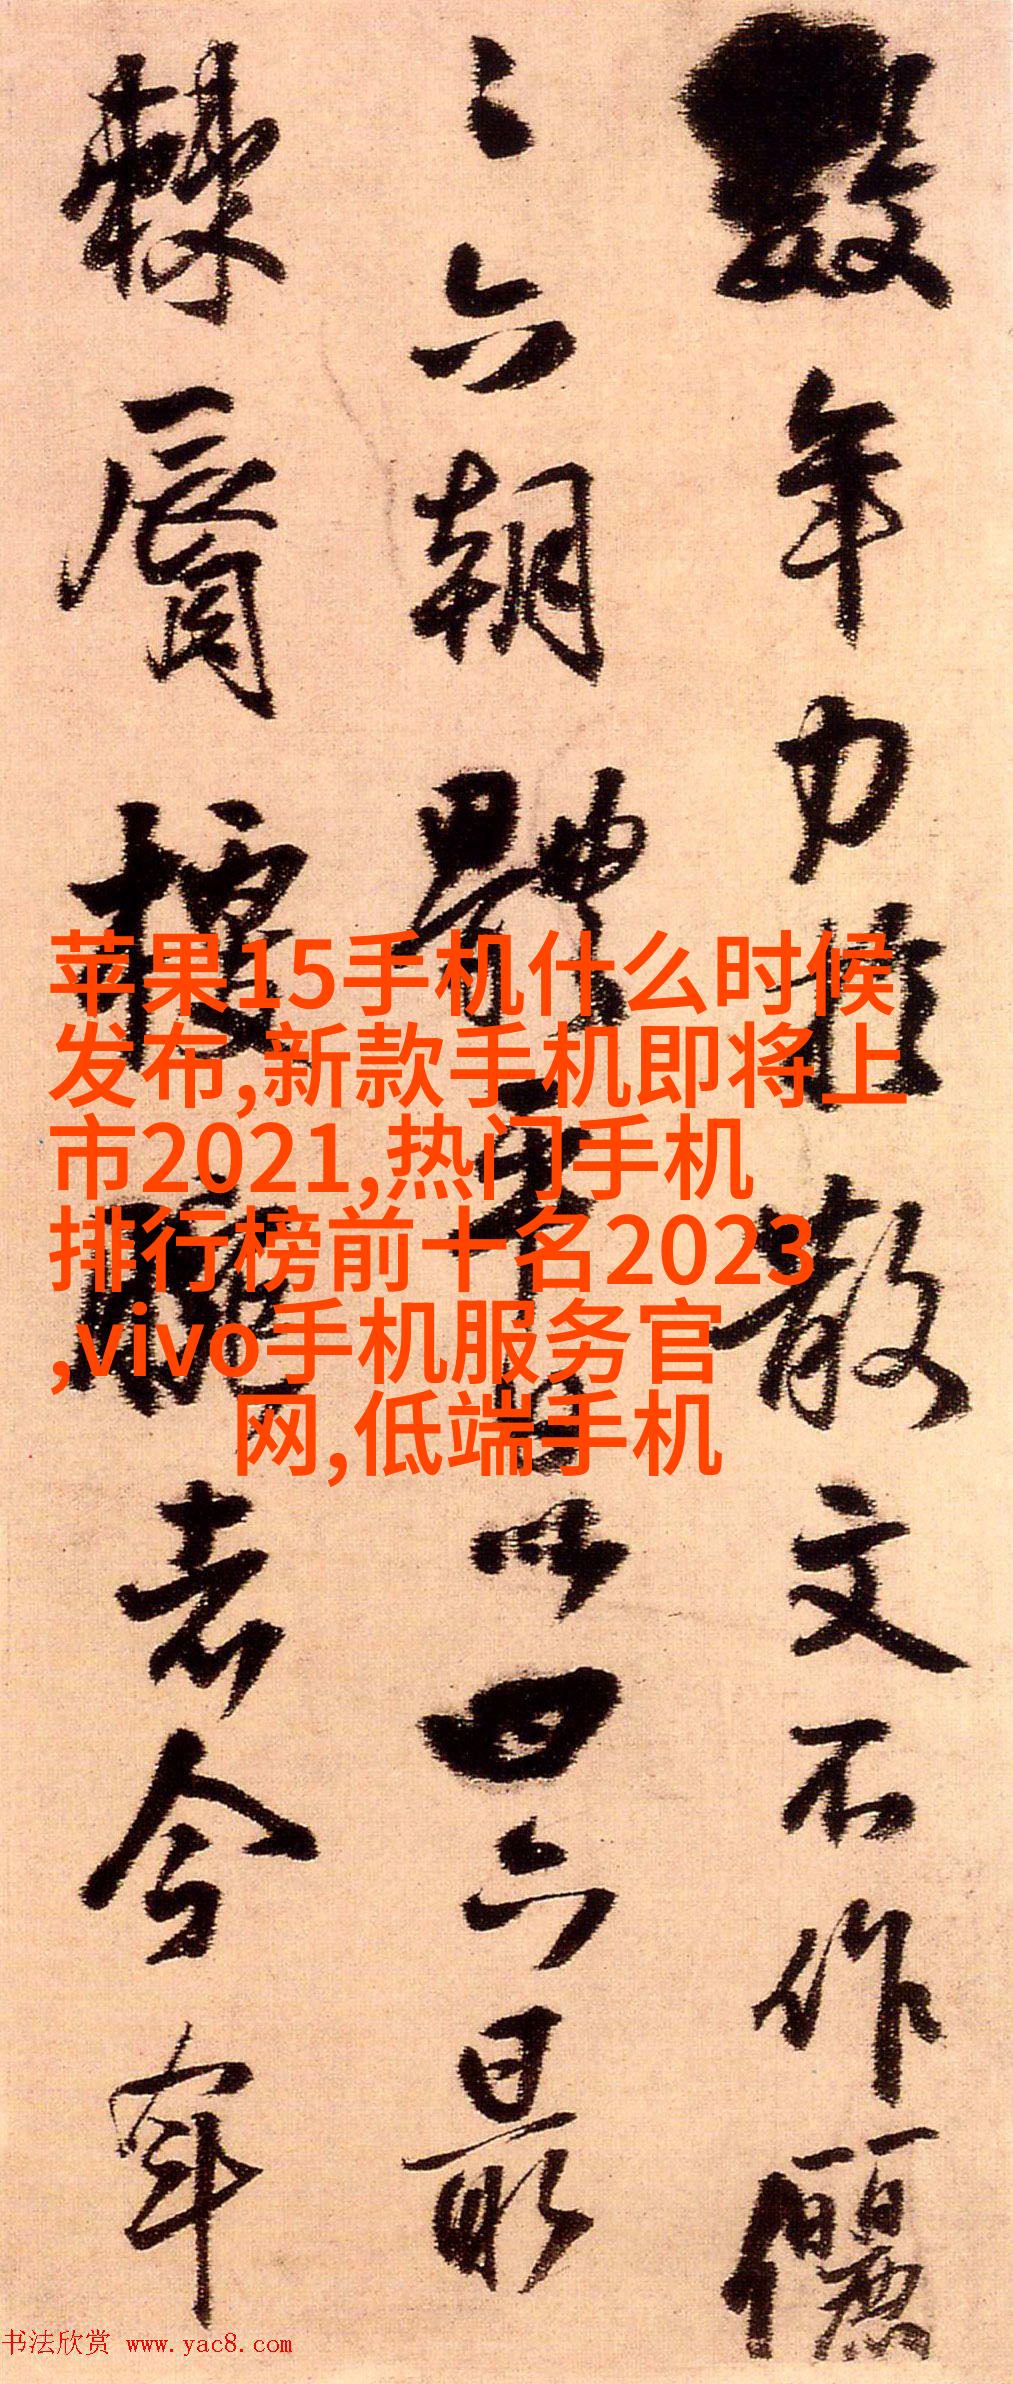 數年力散文不作儷
〻六朝體平以四六最
棘脣老今年
苹果15手机什么时候
发布,新款手机即将上
市2021,热门手机
排行榜前十名2023
,vivo手机服务官
网,低端手机
书法欣赏 www.yac8.com